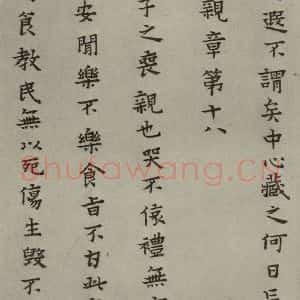 遐不謂矣中心藏之何日
親章第十八
子之喪親也哭不偯禮無
安聞樂不樂食旨不甘此
食教民無以死傷生毀不
Shufawang.Cn